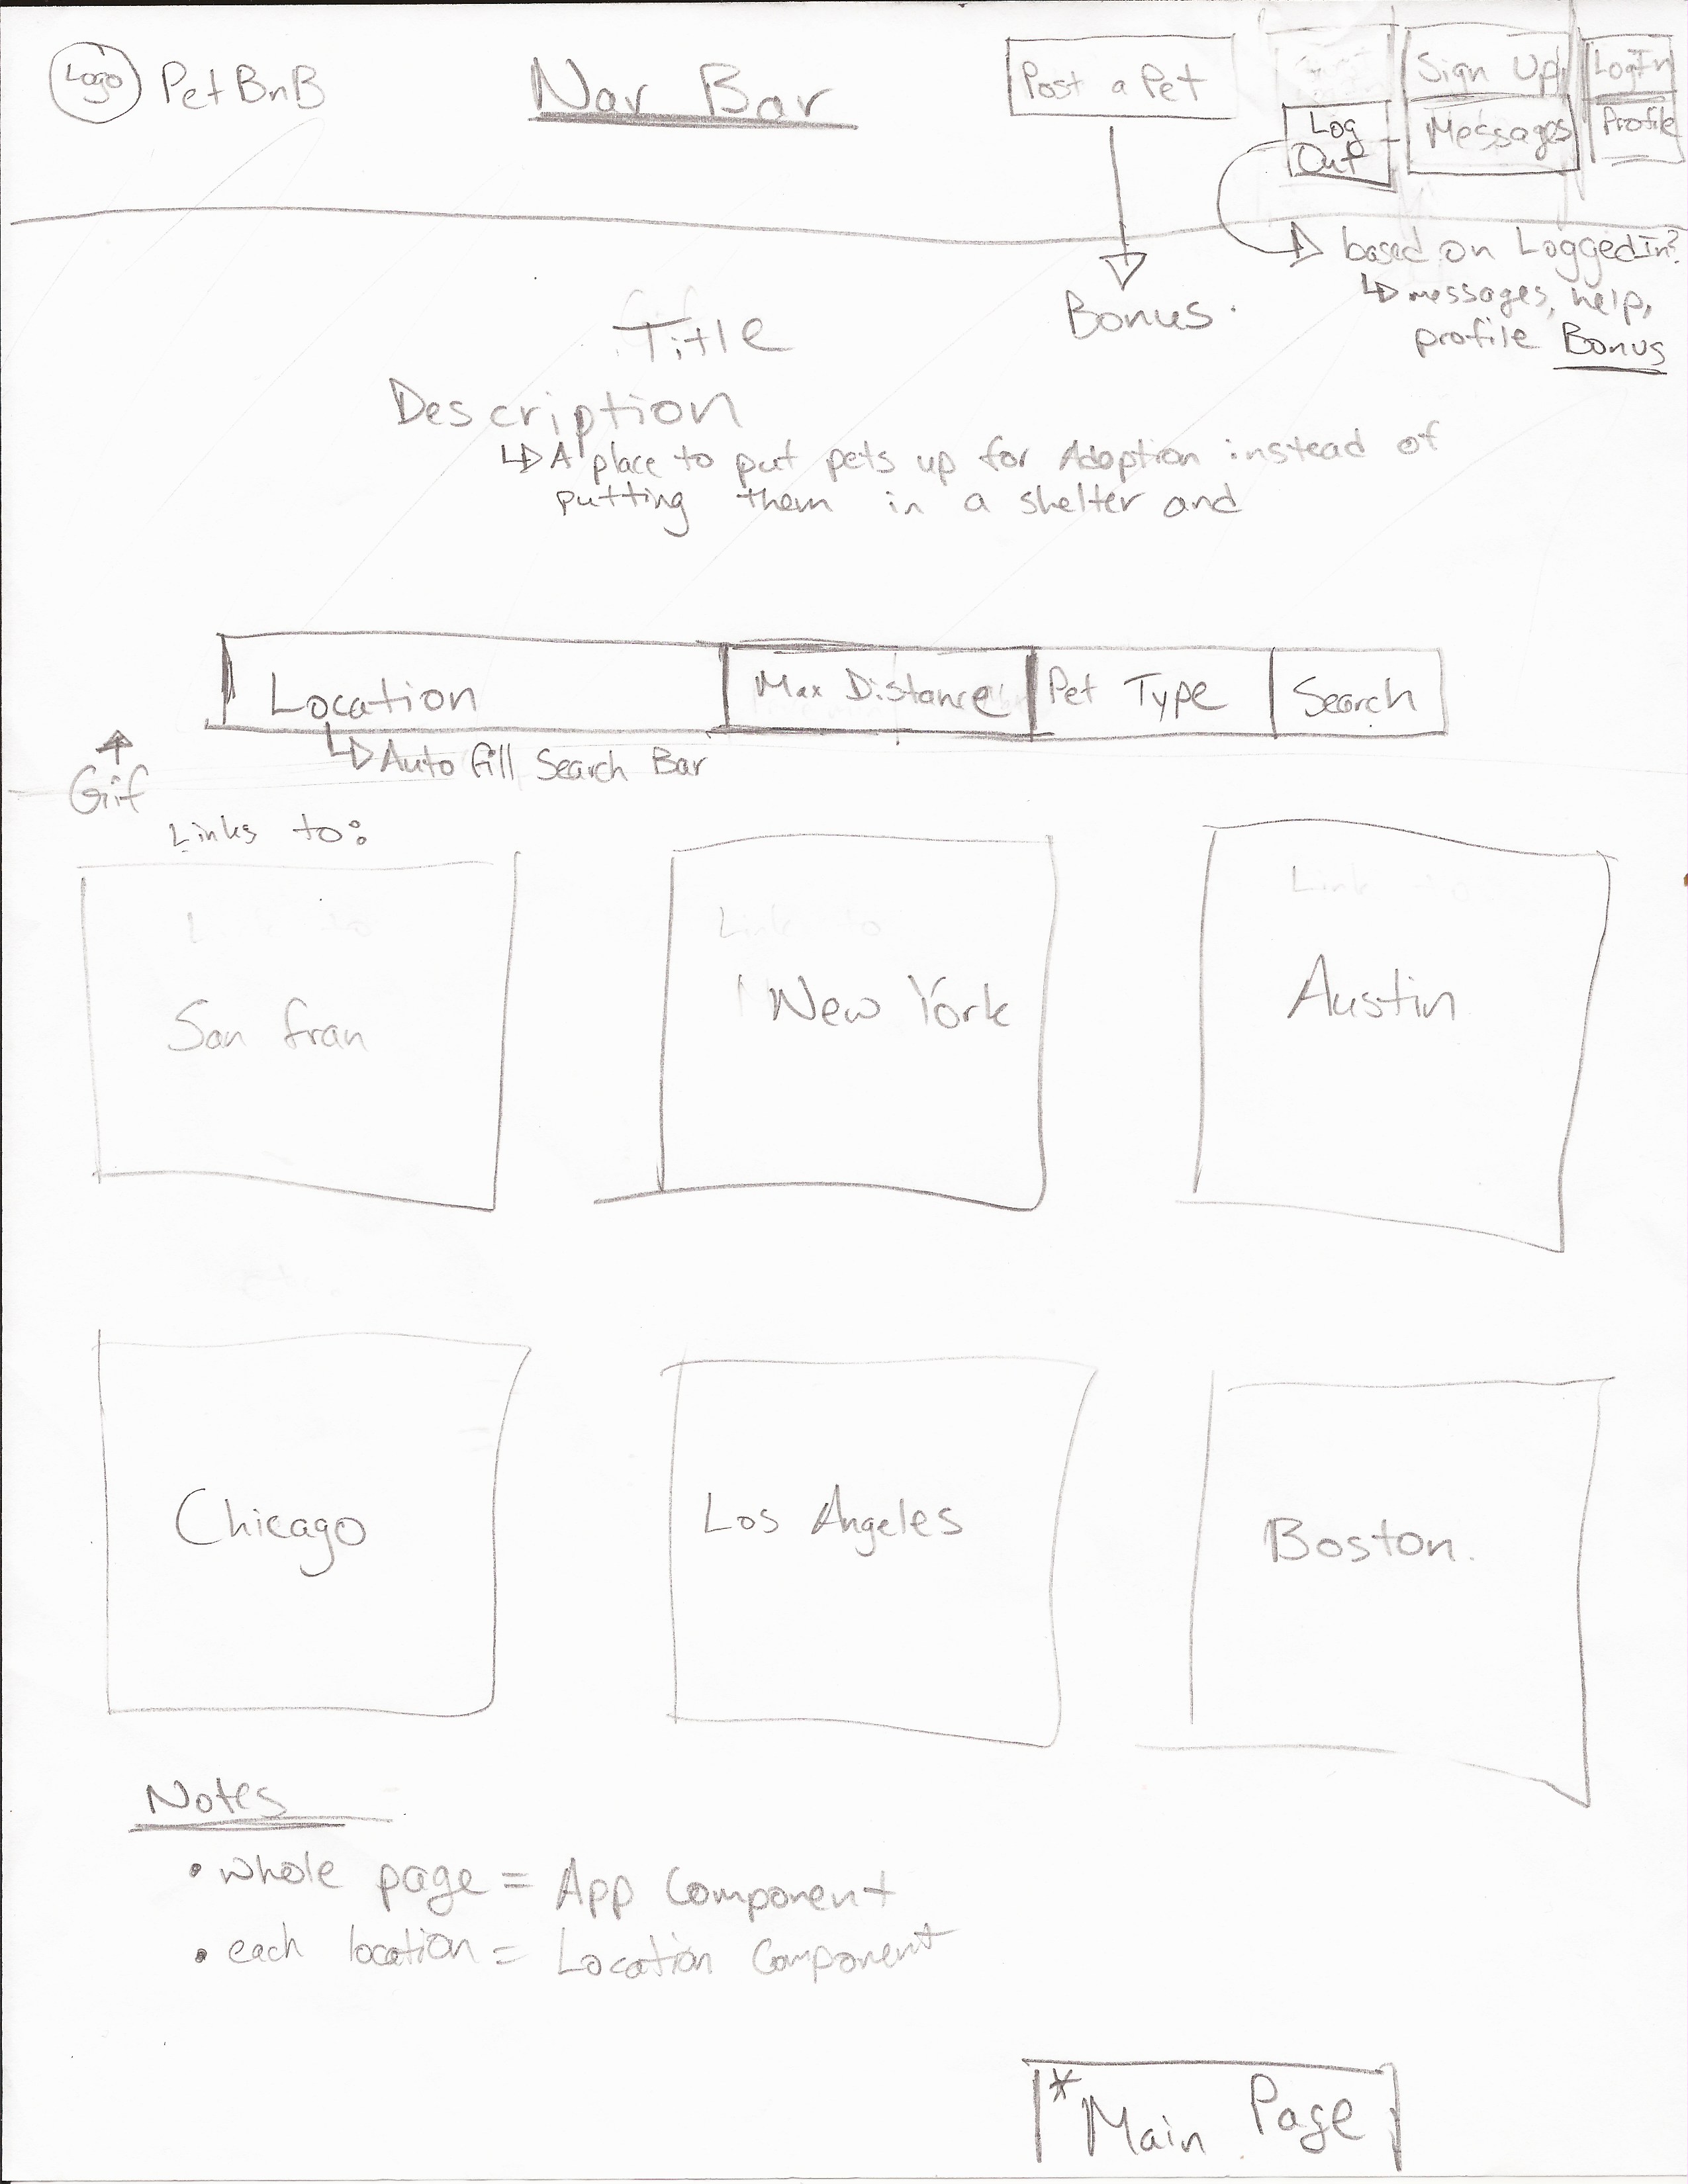 Logo PetBnB
Nav Bar
Post a Pet
Sign Up
LogIn
Log Out
Messages
Profile
Bonus.
based on LoggedIn?
messages, help,
profile Bonus
Title
Description
A place to put pets up for Adoption instead of
putting them in a shelter and
Location
Max Distance
Pet Type
Search
Auto fill Search Bar
Gif
Links to:
San fran
Link to
New York
Link
Austin
Chicago
Los Angeles
Boston.
Notes
• whole page = App Component
• each location = Location Component
*Main Page